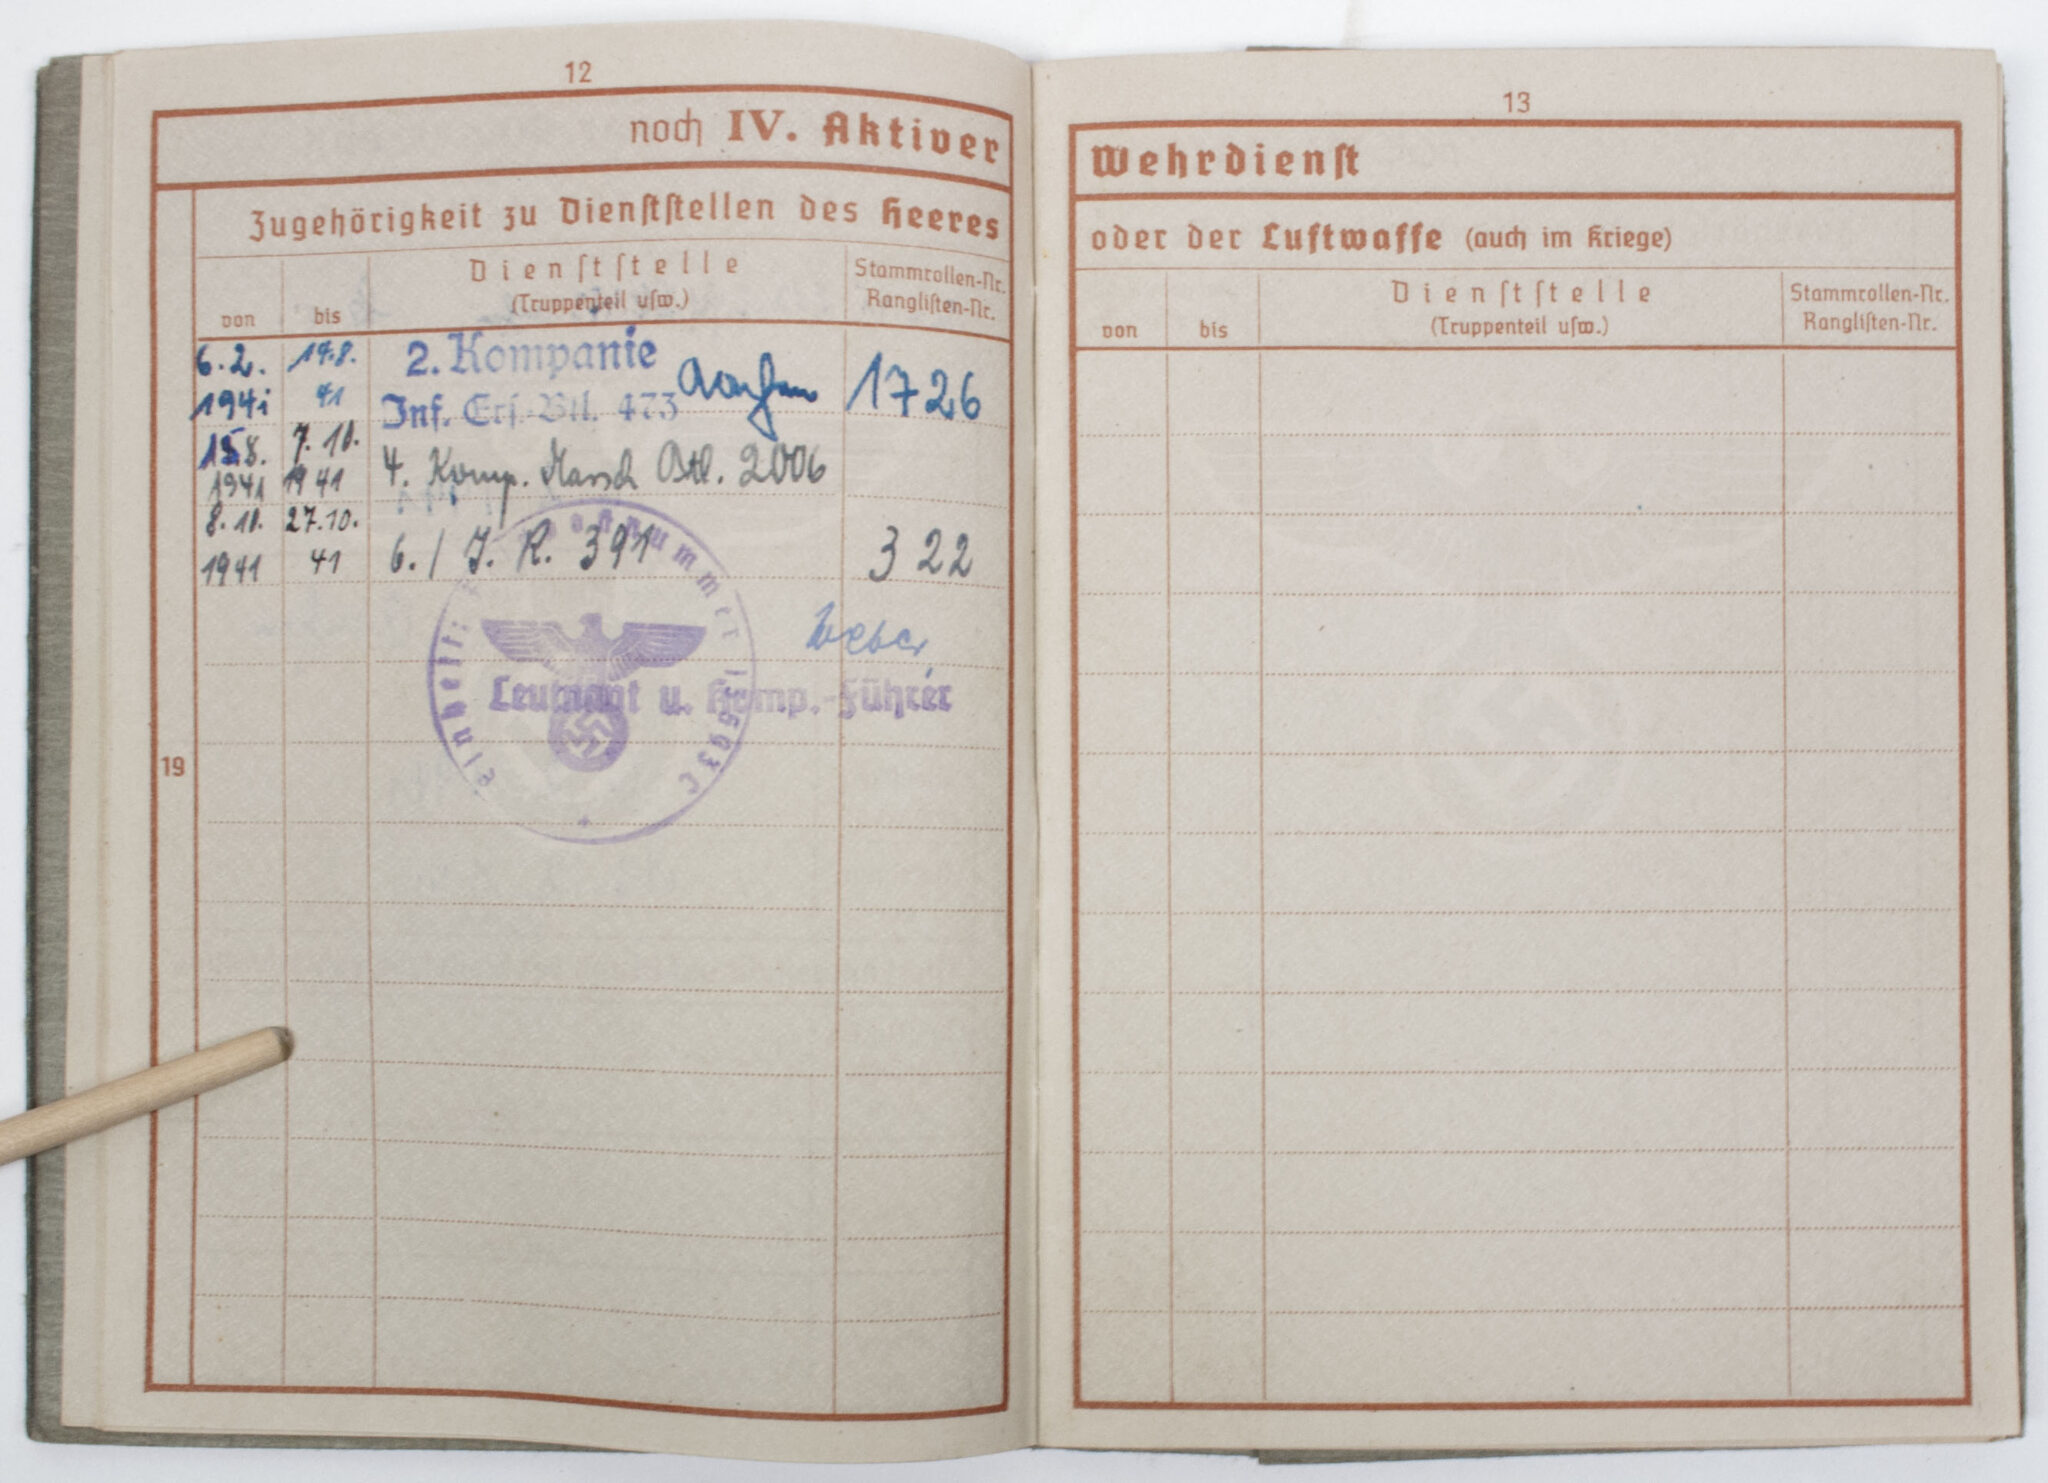 12
noch IV. Aktiver
Zugehörigkeit zu Dienststellen des Heeres
von bis Dienststelle (Truppenteil usw.) Stammrollen-Nr. Ranglisten-Nr.
6.2. 1941 14.8. 41 2. Kompanie Inf. Ers. Btl. 473 Aachen 1726
15 8. 1941 7.10. 1941 4. Komp. Marsch Btl. 2006
8.10. 1941 27.10. 41 6./ J. R. 391 322
Weber
Leutnant u. Komp.-Führer
19
13
Wehrdienst
oder der Luftwaffe (auch im Kriege)
von bis Dienststelle (Truppenteil usw.) Stammrollen-Nr. Ranglisten-Nr.